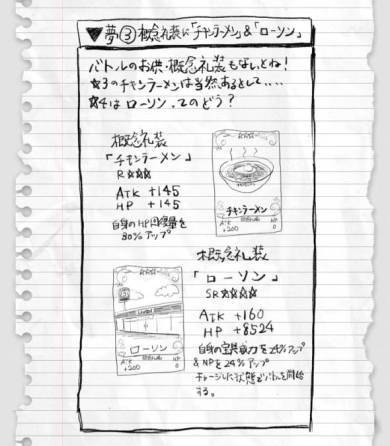 ▼夢③ 概念礼装に「チキンラーメン」&「ローソン」
バトルのお供・概念礼装もないとね!
☆3のチキンラーメンは当然あるとして....
☆4は ローソン、てのどう?
概念礼装
「チキンラーメン」
R☆☆☆
ATK +145
HP +145
自身のHP回復量を
30%アップ
チキンラーメン
ATK
+200
HP
0
概念礼装
「ローソン」
SR☆☆☆☆
ATK +160
HP +8524
自身の宝具威力を24%アップ
&NPを24%アップ
チャージした状態でバトルを開始
する。
ローソン
ATK
+200
HP
0